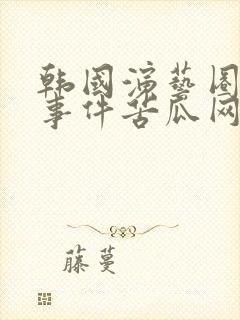 韩國演藝圈
事件苦瓜网
藤蔓